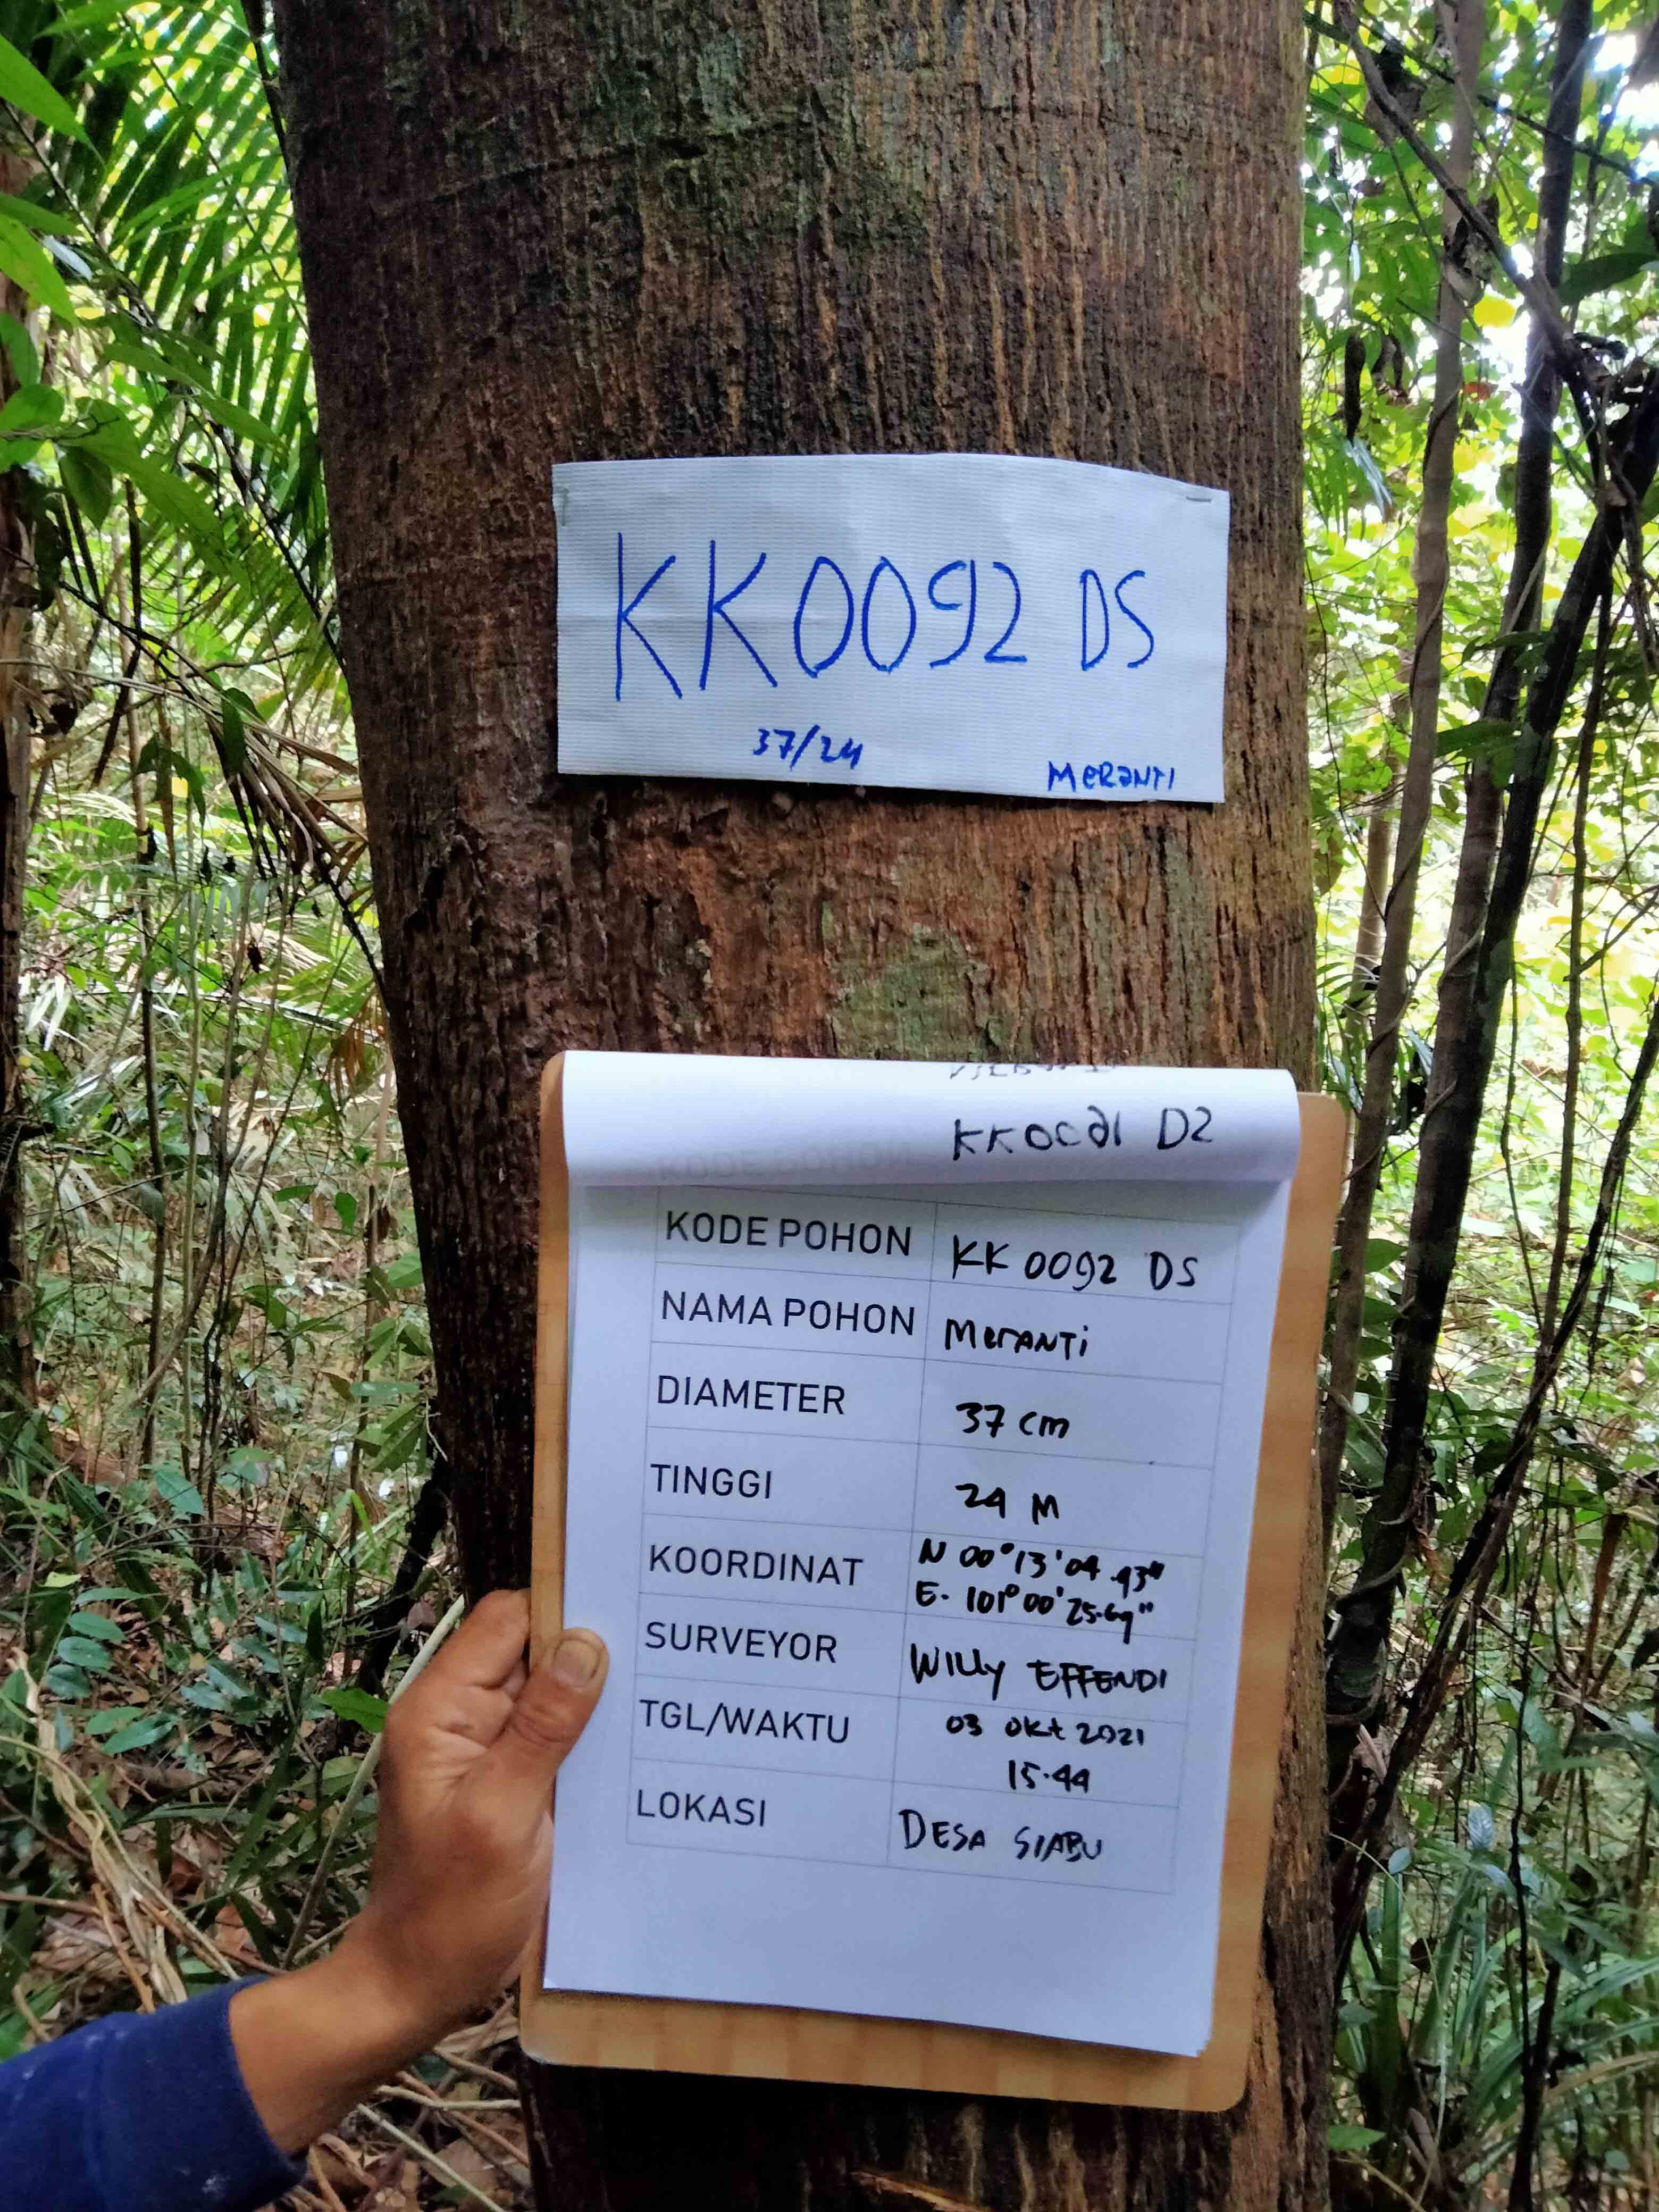 KK0092 DS
37/24
MERANTI
KODE POHON KK 0092 DS
NAMA POHON MerANTi
DIAMETER 37 cm
TINGGI 24 M
KOORDINAT N 00°13'04.93"
E. 101°00'25.69"
SURVEYOR WILLy EFFENDI
TGL/WAKTU 03 Okt 2021
15.44
LOKASI DESA SIABU